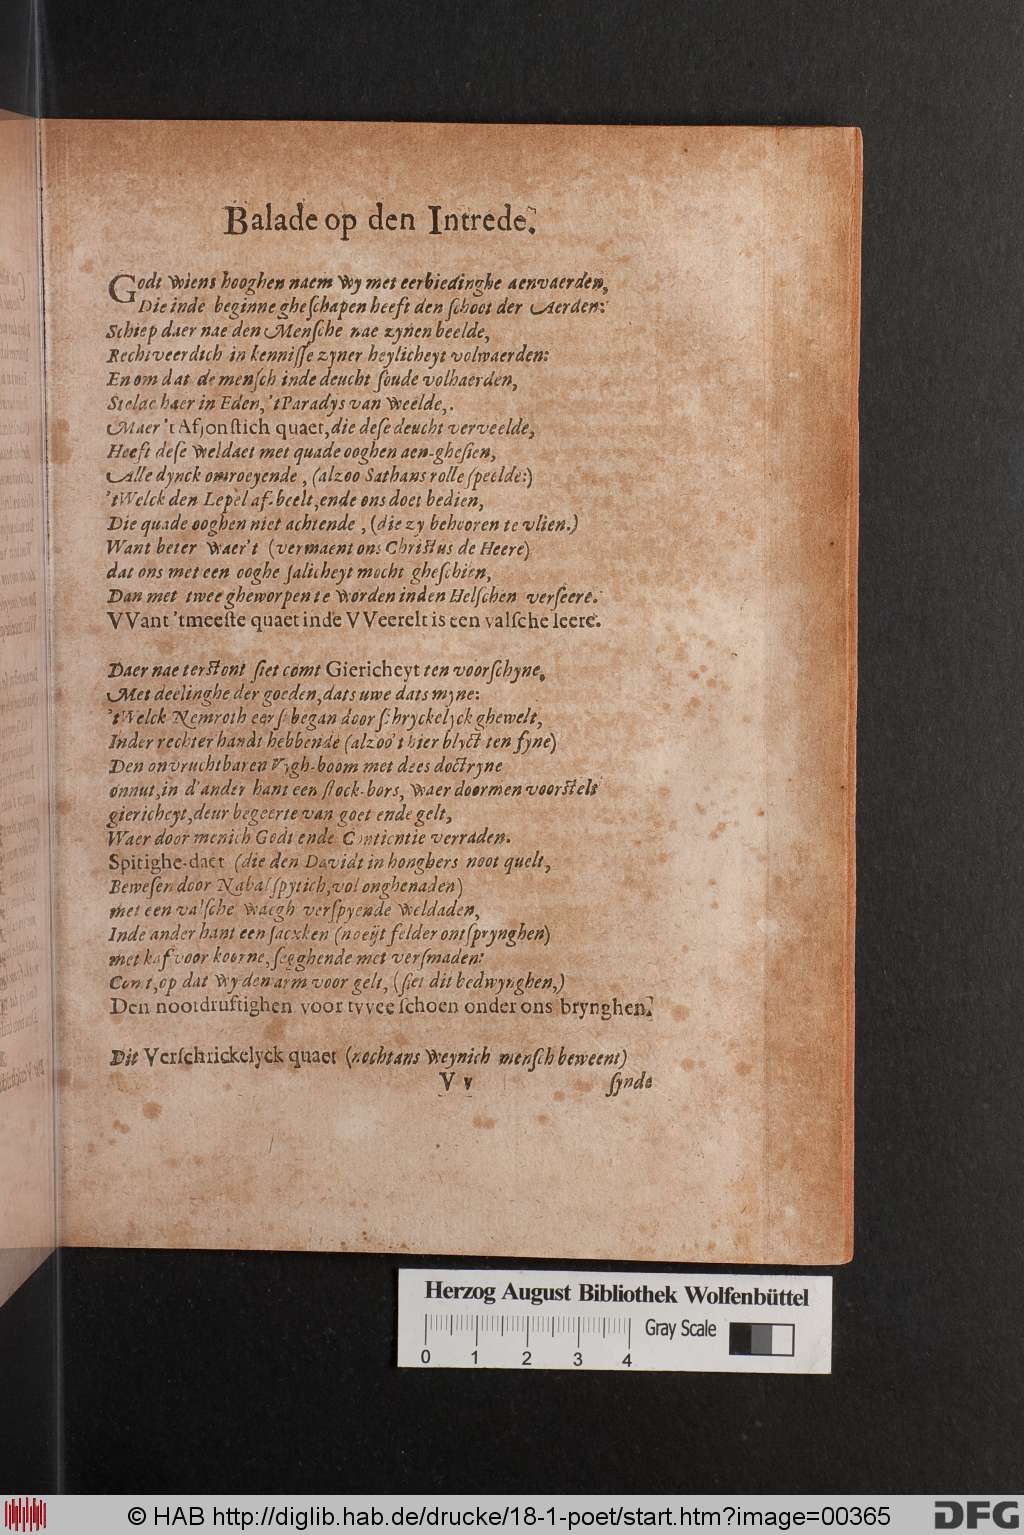 Balade op den Intrede.
Godt wiens hooghen naem wy met eerbiedinghe aenvaerden,
Die inde beginne gheſchapen heeft den ſchoot der Aerden:
Schiep daer nae den Menſche nae zynen beelde,
Rechtveerdich in kenniſſe zyner heylicheyt volwaerden:
En om dat de menſch inde deucht ſoude volhaerden,
Stelde haer in Eden, 'tParadys van weelde,.
Maer 't Afjonſtich quaet, die deſe deucht verveelde,
Heeft deſe weldaet met quade ooghen aen-gheſien,
Alle dynck omroeyende, (alzoo Sathans rolle ſpeelde:)
'tWelck den Lepel af-beelt, ende ons doet bedien,
Die quade ooghen niet achtende, (die zy behooren te vlien.)
Want beter waer't (vermaent ons Chriſtus de Heere)
dat ons met een ooghe ſalicheyt mocht gheſchien,
Dan met twee gheworpen te worden inden Helſchen verſeere.
VVant 'tmeeſte quaet inde VVeerelt is een valſche leere.
Daer nae terſtont ſiet comt Giericheyt ten voorſchyne,
Met deelinghe der goeden, dats uwe dats myne:
'tWelck Nemroth eerſt began door ſchryckelyck ghewelt,
Inder rechter handt hebbende (alzoo't hier blyct ten fyne)
Den onvruchtbaren Vygh-boom met dees doctryne
onnut, in d'ander hant een ſtock-bors, waer doormen voorſtelt
giericheyt, deur begeerte van goet ende gelt,
Waer door menich Godt ende Contientie verraden.
Spitighe-daet (die den Davidt in honghers noot quelt,
Beweſen door Nabal ſpytich, vol onghenaden)
met een valſche waegh verſpyende weldaden,
Inde ander hant een ſacxken (noeijt felder ontſprynghen)
met kaf voor koorne, ſegghende met verſmaden:
Comt, op dat wy den arm voor gelt, (ſiet dit bedwynghen,)
Den nootdruftighen voor tvvee ſchoen onder ons brynghen.
Dit Verſchrickelyck quaet (nochtans weynich menſch beweent)
V v ſynde
Herzog August Bibliothek Wolfenbüttel
0 1 2 3 4 Gray Scale
© HAB http://diglib.hab.de/drucke/18-1-poet/start.htm?image=00365 DFG